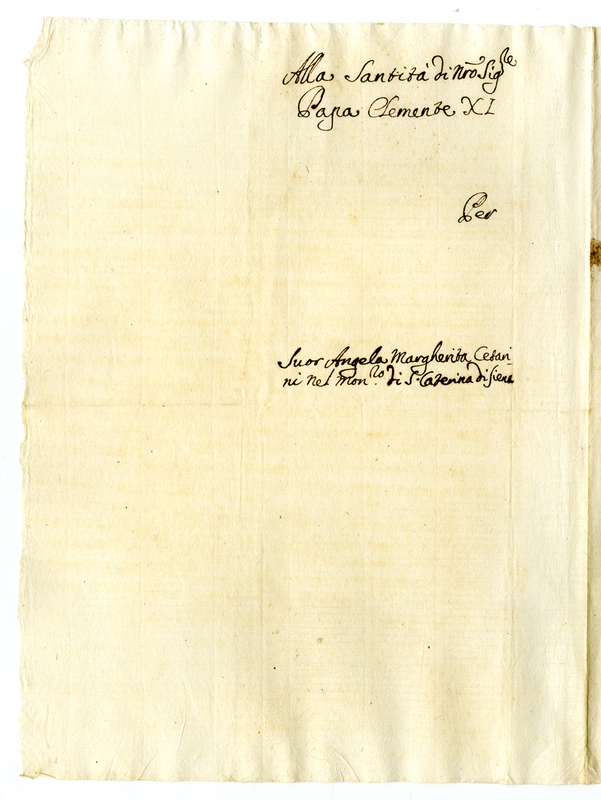 Alla Santità di Nrõ Sig.re
Papa Clemente XI
Per
Suor Angela Margherita Cesari-
ni nel mon.ro di S. Caterina di Siena